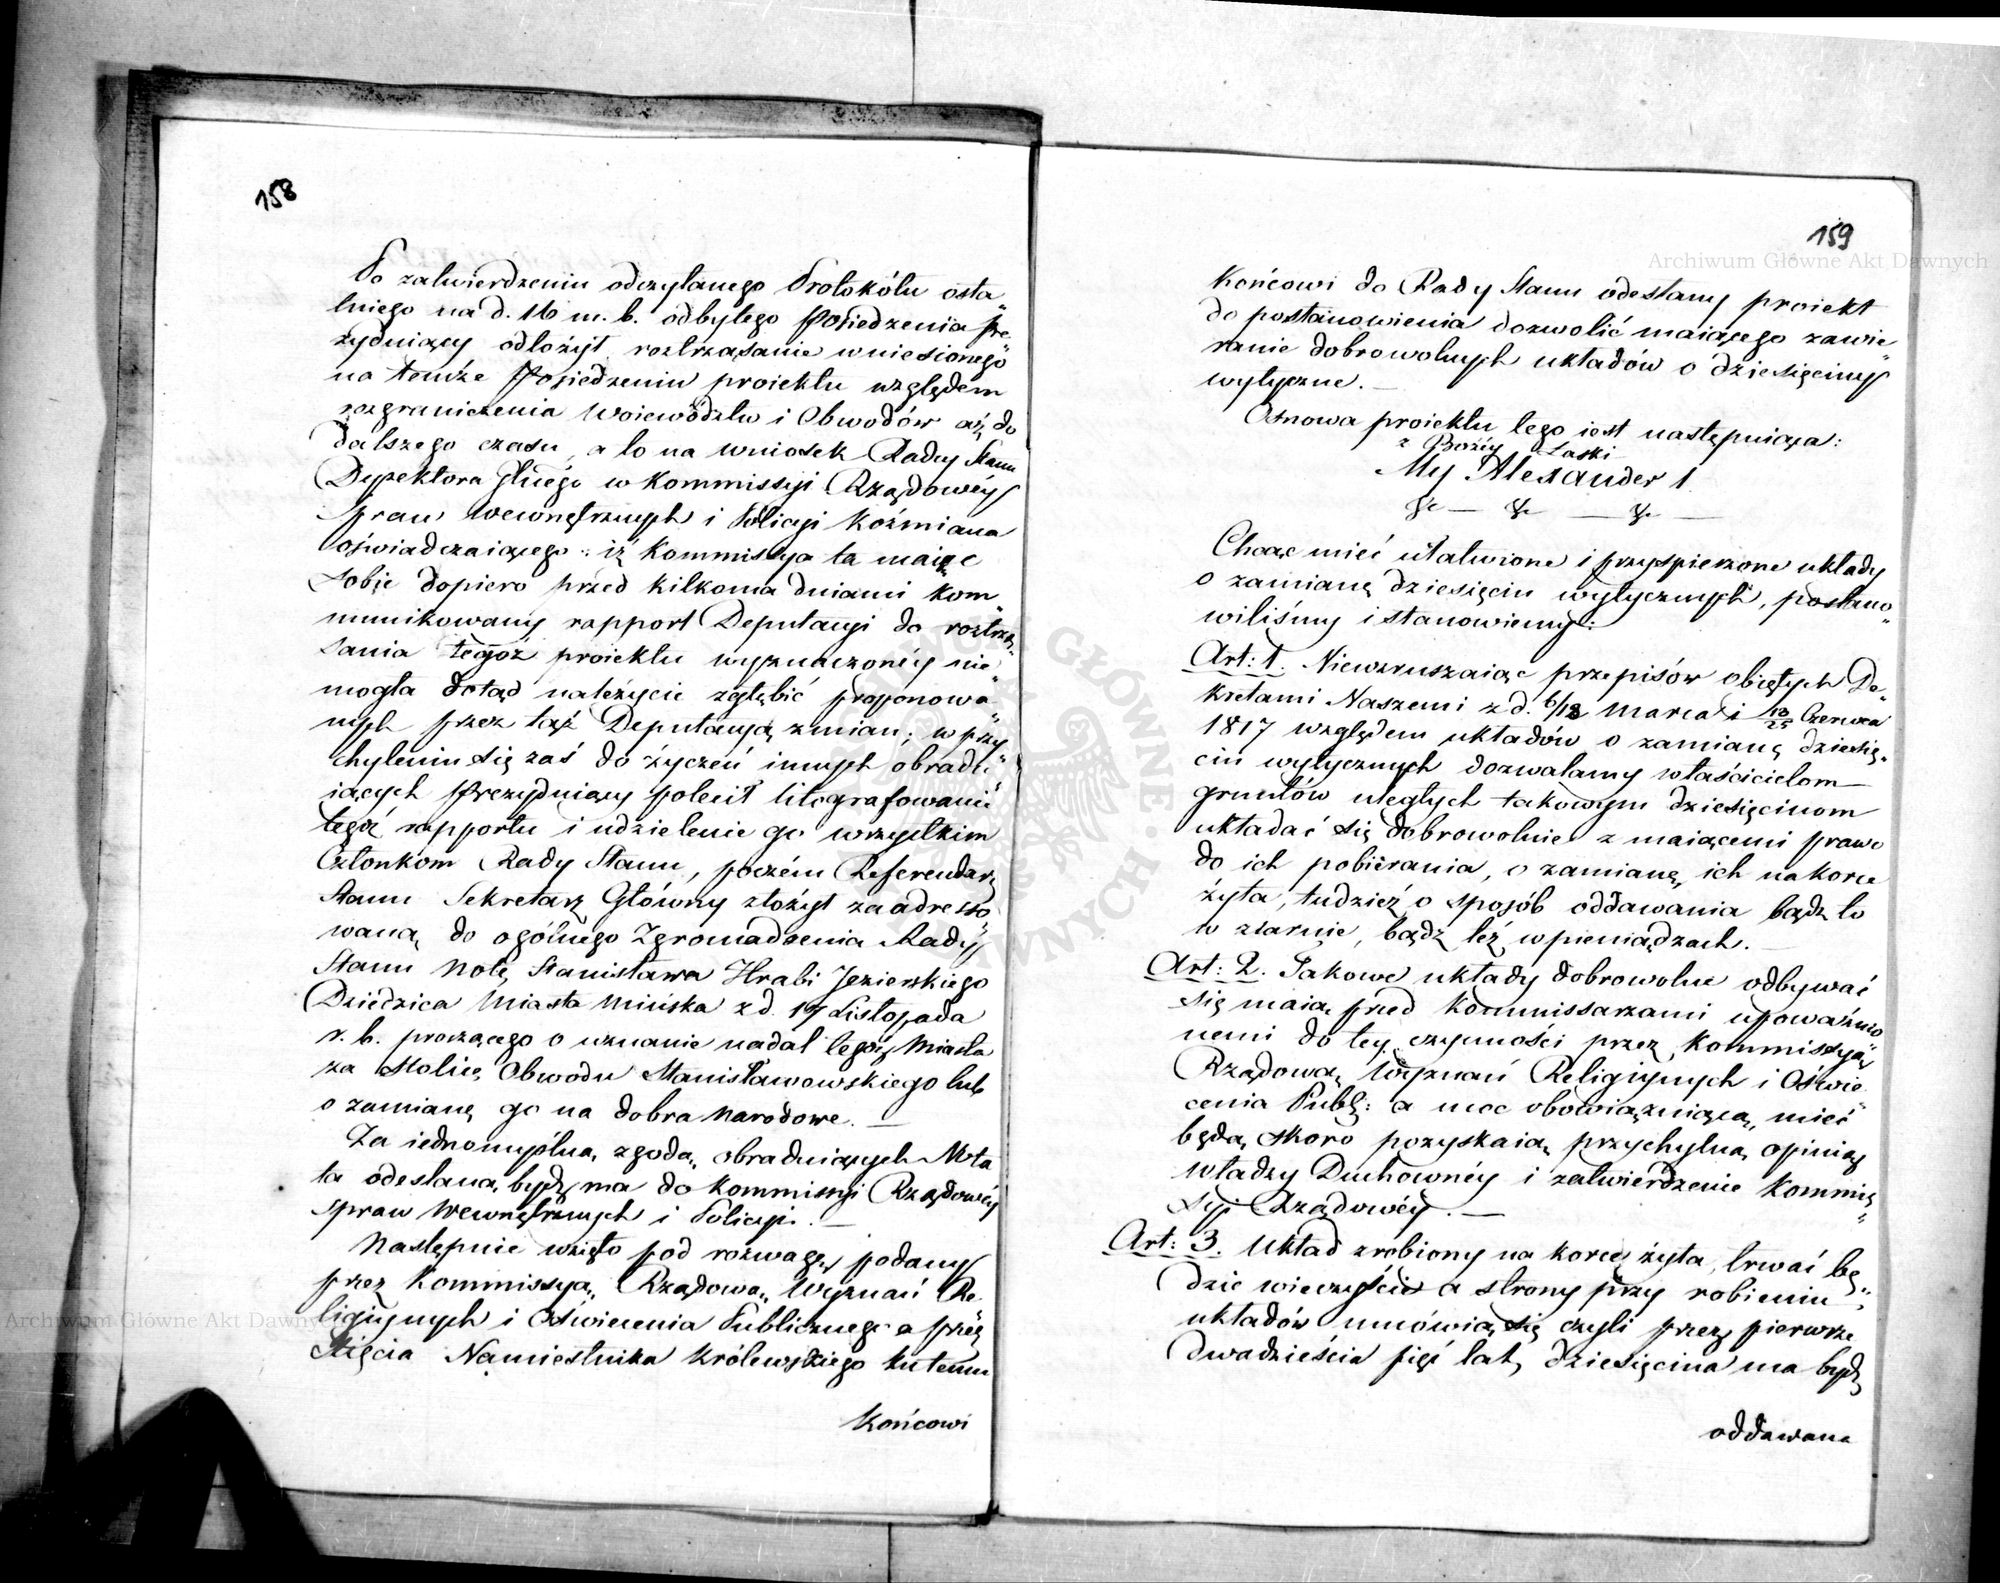 158
Po zatwierdzeniu odczytanego Protokółu osta„
tniego na d. 16 m. b. odbytego Posiedzenia Pre„
zyduiący odłożył roztrząsanie wniesionego
na temże Posiedzeniu proiektu względem
rozgraniczenia Woiewództw i Obwodów aż do
dalszego czasu, a to na wniosek Radcy Stanu
Dyrektora Głnégo w Kommissyi Rządowéy
Spraw Wewnętrznych i Policyi Koźmiana
oświadczaiącego: iż Kommissya ta maiąc
sobie dopiero przed kilkoma dniami kom„
munikowany rapport Deputacyi do roztrzą„
sania tegoż proiektu wyznaczonéy nie
mogła dotąd należycie zgłębić proponowa„
nych przez taż Deputacyą zmian; w przy„
chyleniu się zaś do życzeń innych obradu„
iących Prezyduiący polecił litografowanie
tegoż rapportu i udzielenie go wszystkim
Członkom Rady Stanu, poczém Referendarz
Stanu Sekretarz Główny złożył zaadresso„
waną do ogólnego Zgromadzenia Rady
Stanu notę Stanisława Hrabi Jezierskiego
Dziedzica Miasta Mińska z d. 17 Listopada
r. b. proszącego o uznanie nadal tegoż Miasta
za stolicę Obwodu Stanisławowskiego lub
o zamianę go na dobra narodowe. —
Za iednomyślną zgodą obraduiących Nota
ta odesłaną bydź ma do Kommissyi Rządowéy
Spraw Wewnętrznych i Policyi. —
Następnie wzięto pod rozwagę podany
przez Kommissyą Rządową Wyznań Re„
ligiynych i Oświecenia Publicznego a przez
Xięcia Namiestnika Królewskiego ku temu
końcowi
159
końcowi do Rady Stanu odesłany proiekt
do postanowienia dozwolić maiącego zawie„
ranie dobrowolnych układów o dziesięciny
wytyczne. —
Osnowa proiektu tego iest następuiąca:
z Bożéy Łaski
My Alexander I
&c — &c — &c —
Chcąc mieć ułatwione i przyspieszone układy
o zamianę dziesięcin wytycznych, postano„
wiliśmy i stanowiemy:
Art: 1. Niewzruszaiąc przepisów obiętych De„
kretami Naszemi z d. 6/18 Marca i 13/25 Czerwca
1817 względem układów o zamianę dziesię„
cin wytycznych dozwalamy właścicielom
gruntów uległych takowym dziesięcinom
układać się dobrowolnie z maiącemi prawo
do ich pobierania, o zamianę ich na korce
żyta, tudzież o sposób oddawania bądź to
w ziarnie, bądź też w pieniądzach. —
Art: 2. Takowe układy dobrowolne odbywać
się maią przed Kommissarzami upoważnio„
nemi do tey czynności przez Kommissyą
Rządową Wyznań Religiynych i Oświe„
cenia Publ: a moc obowiązuiącą mieć
będą skoro pozyskaią przychylną opinią
władzy Duchownéy i zatwierdzenie Kommis„
syi Rządowéy. —
Art: 3. Układ zrobiony na korce żyta, trwać bę„
dzie wieczyście a strony przy robieniu
układów umówią się czyli przez pierwsze
dwadzieścia pięć lat, dziesięcina ma bydź
oddawana
Archiwum Główne Akt Dawnych
Archiwum Główne Akt Dawnych
ARCHIWUM GŁÓWNE AKT DAWNYCH